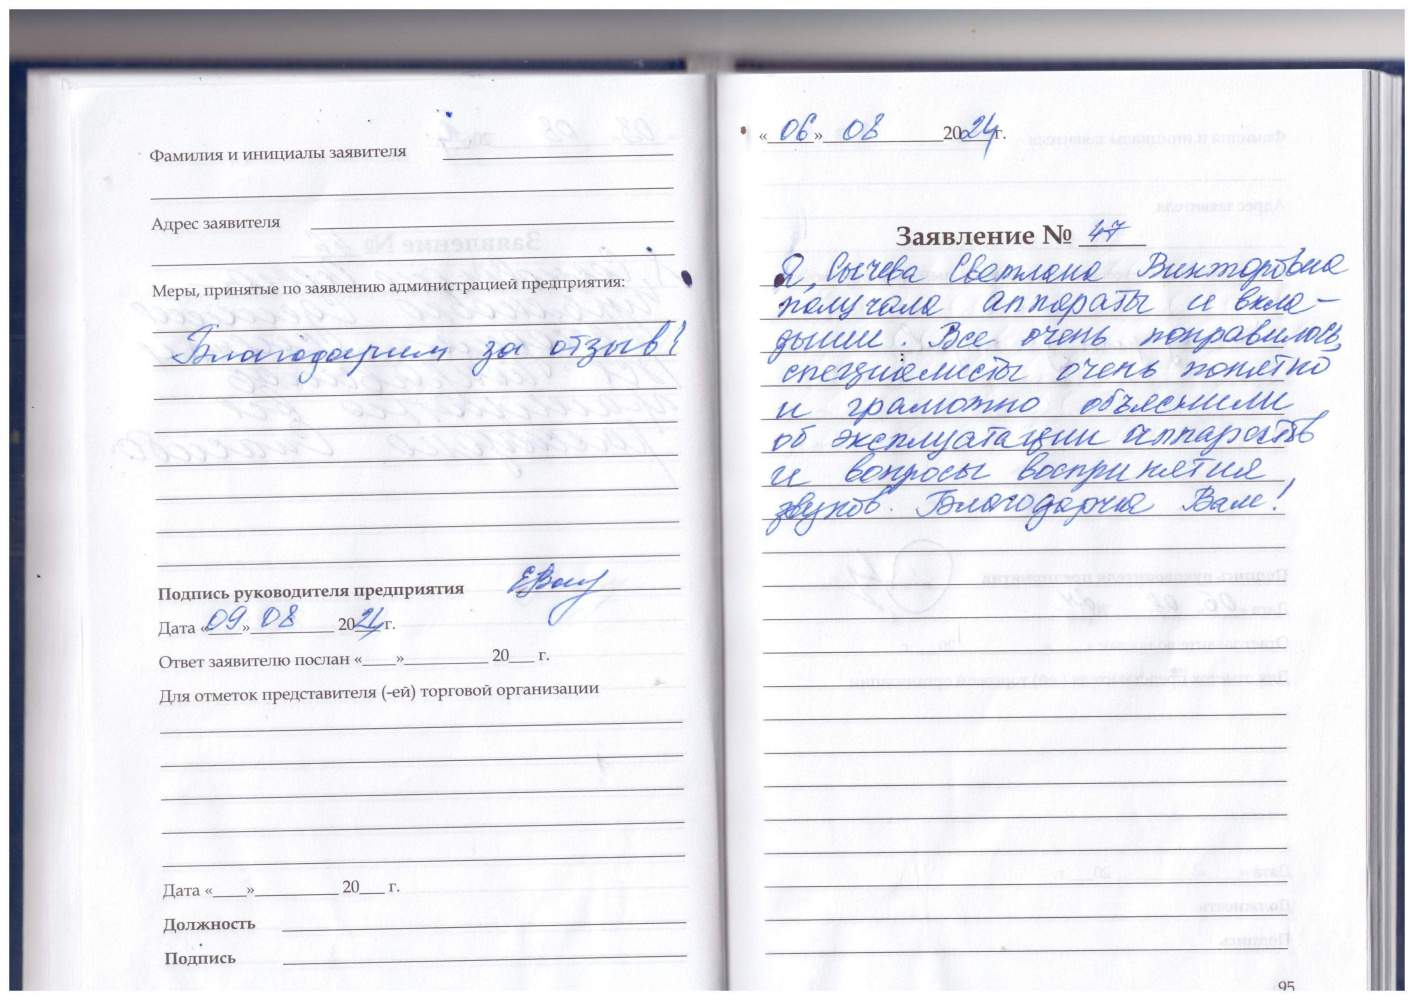 Фамилия и инициалы заявителя
Адрес заявителя
Меры, принятые по заявлению администрацией предприятия:
Благодарим за отзыв!
Подпись руководителя предприятия
Дата «09» 08 2024 г.
Ответ заявителю послан «___»__________ 20___ г.
Для отметок представителя (-ей) торговой организации
Дата «___»__________ 20___ г.
Должность
Подпись
«06» 08 2024г.
Заявление № 47
Я, Сычева Светлана Викторовна
получала аппараты и вкла-
дыши. Все очень понравилось,
специалисты очень понятно
и грамотно объяснили
об эксплуатации аппаратов
и вопросы восприятия
звуков. Благодарна Вам!
95